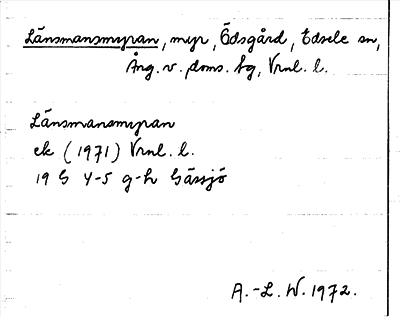 Länsmansmyran, myr, Ödsgård, Edsele sn,
Ång. v. doms. fg, Vrnl. l.
Länsmansmyran
ek (1971) Vrnl. l.
19 G 4-5 g-h Gässjö
A.-L. W. 1972.